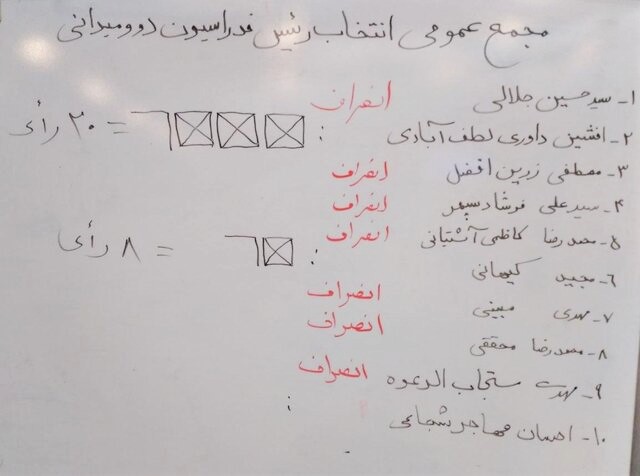 مجمع عمومی انتخاب رئیس فدراسیون دوومیدانی
۱- سید حسین جلالی انصراف
۲- افشین داوری لطف آبادی : = ۲۰ رأی
۳- مصطفی زرین افضل انصراف
۴- سید علی فرشاد سپهر انصراف
۵- محمد رضا کاظمی آشتیانی انصراف
۶- مجید کیهانی : = ۸ رأی
۷- مهدی مبینی انصراف
۸- محمد رضا محققی انصراف
۹- مهدی مستجاب الدعوه انصراف
۱۰- احسان مهاجر شجاعی :